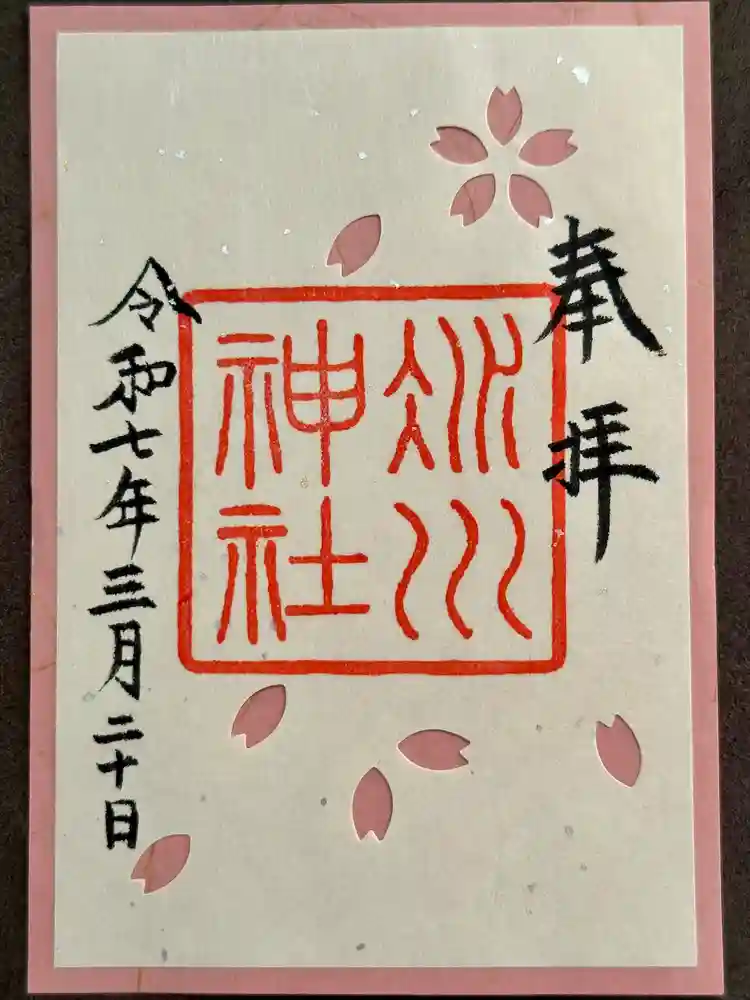 奉拝
冰川
神社
令和七年三月二十日